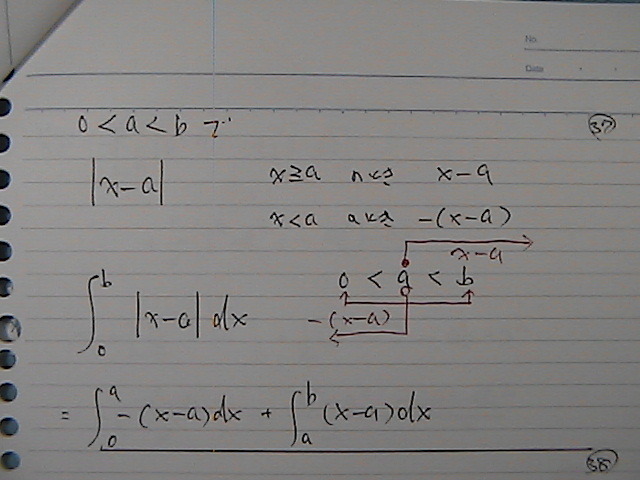 No.
Date
0 < a < b で
㊲
|x-a|
x≧a のとき x-a
x<a のとき -(x-a)
x-a
0 < a < b
-(x-a)
∫₀ᵇ |x-a| dx
= ∫₀ᵃ -(x-a)dx + ∫ₐᵇ (x-a)dx
㊳